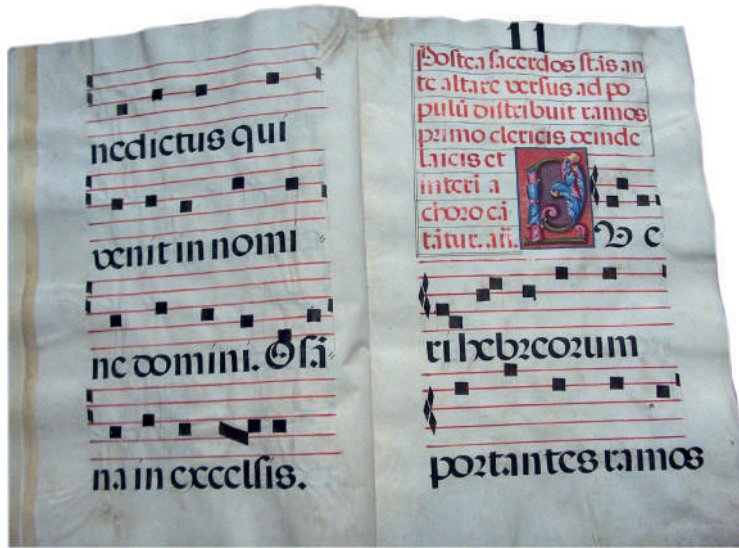 nedictus qui
venit in nomi
ne domini. Osã
na in excelsis.
11
Postea sacerdos stãs an
te altare versus ad po
pulũ distribuit ramos
primo clericis deinde
laicis et
interi a
choro cã
tãtur. añ.
PV e
ri hebreorum
portantes ramos